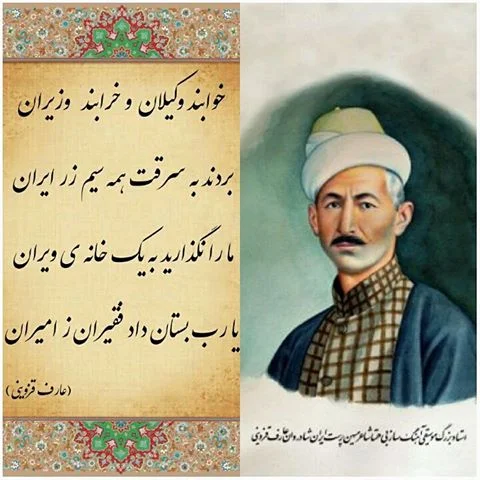 خوابند وکیلان و خرابند وزیران
بردند به سرقت همه سیم زر ایران
ما را نگذارید به یک خانه ی ویران
یا رب بستان داد فقیران ز امیران
(عارف قزوینی)
استاد بزرگ موسیقی آهنگ ساز بی همتا شاعر میهن پرست ایران شادروان عارف قزوینی